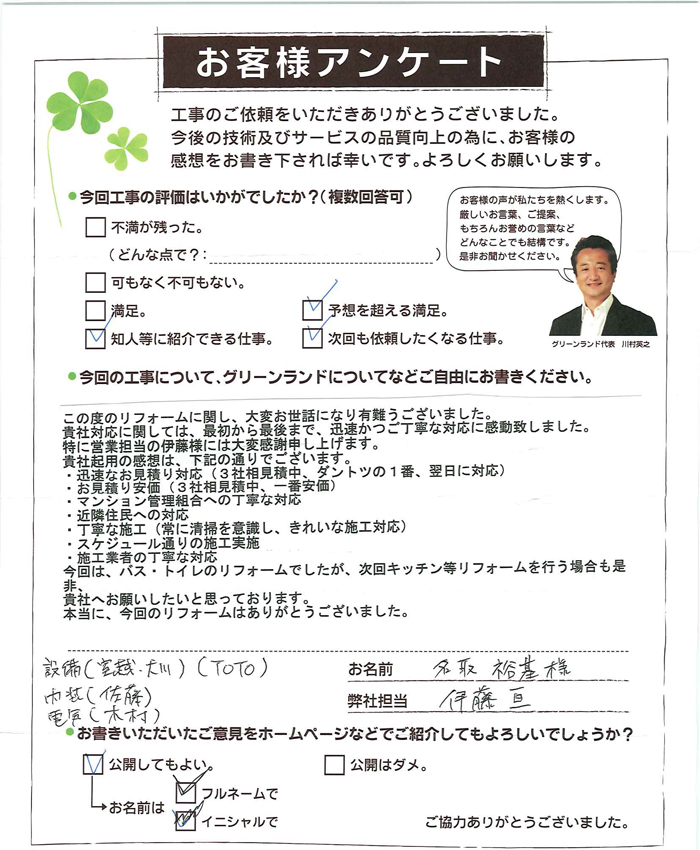 お客様アンケート
工事のご依頼をいただきありがとうございました。
今後の技術及びサービスの品質向上の為に、お客様の
感想をお書き下されば幸いです。よろしくお願いします。
今回工事の評価はいかがでしたか？（複数回答可）
不満が残った。
（どんな点で？：　）
可もなく不可もない。
満足。
予想を超える満足。
知人等に紹介できる仕事。
次回も依頼したくなる仕事。
お客様の声が私たちを熱くします。
厳しいお言葉、ご提案、
もちろんお誉めの言葉など
どんなことでも結構です。
是非お聞かせください。
グリーンランド代表　川村英之
今回の工事について、グリーンランドについてなどご自由にお書きください。
この度のリフォームに関し、大変お世話になり有難うございました。
貴社対応に関しては、最初から最後まで、迅速かつご丁寧な対応に感動致しました。
特に営業担当の伊藤様には大変感謝申し上げます。
貴社起用の感想は、下記の通りでございます。
・迅速なお見積り対応（３社相見積中、ダントツの１番、翌日に対応）
・お見積り安価（３社相見積中、一番安価）
・マンション管理組合への丁寧な対応
・近隣住民への対応
・丁寧な施工（常に清掃を意識し、きれいな施工対応）
・スケジュール通りの施工実施
・施工業者の丁寧な対応
今回は、バス・トイレのリフォームでしたが、次回キッチン等リフォームを行う場合も是
非、
貴社へお願いしたいと思っております。
本当に、今回のリフォームはありがとうございました。
設備（宮越・大川）（TOTO）
内装（佐藤）
電気（木村）
お名前　名取 裕基様
弊社担当　伊藤 亘
お書きいただいたご意見をホームページなどでご紹介してもよろしいでしょうか？
公開してもよい。
公開はダメ。
お名前は
フルネームで
イニシャルで
ご協力ありがとうございました。